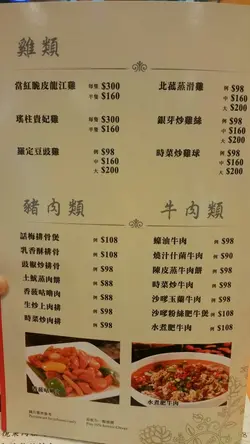 雞類
當紅脆皮龍江雞 每隻 $300
半隻 $160
瑤柱貴妃雞 每隻 $300
半隻 $160
羅定豆豉雞 例 $98
中 $160
大 $200
北菰蒸滑雞 例 $98
中 $160
大 $200
銀芽炒雞絲 例 $98
中 $160
大 $200
時菜炒雞球 例 $98
中 $160
大 $200
豬肉類
話梅排骨煲 例 $108
乳香酥排骨 例 $108
豉椒炒排骨 例 $98
土魷蒸肉餅 例 $88
香菠咕嚕肉 例 $88
生炒上肉排 例 $98
時菜炒肉排 例 $98
牛肉類
蠔油牛肉 例 $98
燒汁什菌牛肉 例 $90
陳皮蒸牛肉餅 例 $98
時菜炒牛肉 例 $98
沙嗲玉蘭牛肉 例 $98
沙嗲粉絲肥牛煲 例 $108
水煮肥牛肉 例 $108
香菠咕嚕肉
水煮肥牛肉